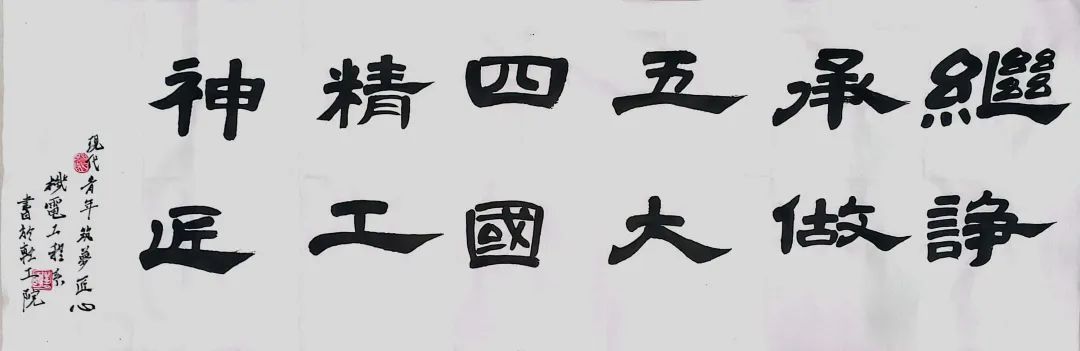 繼承五四精神
諍做大國工匠
現代青年筑夢匠心
機電工程系
書於工院